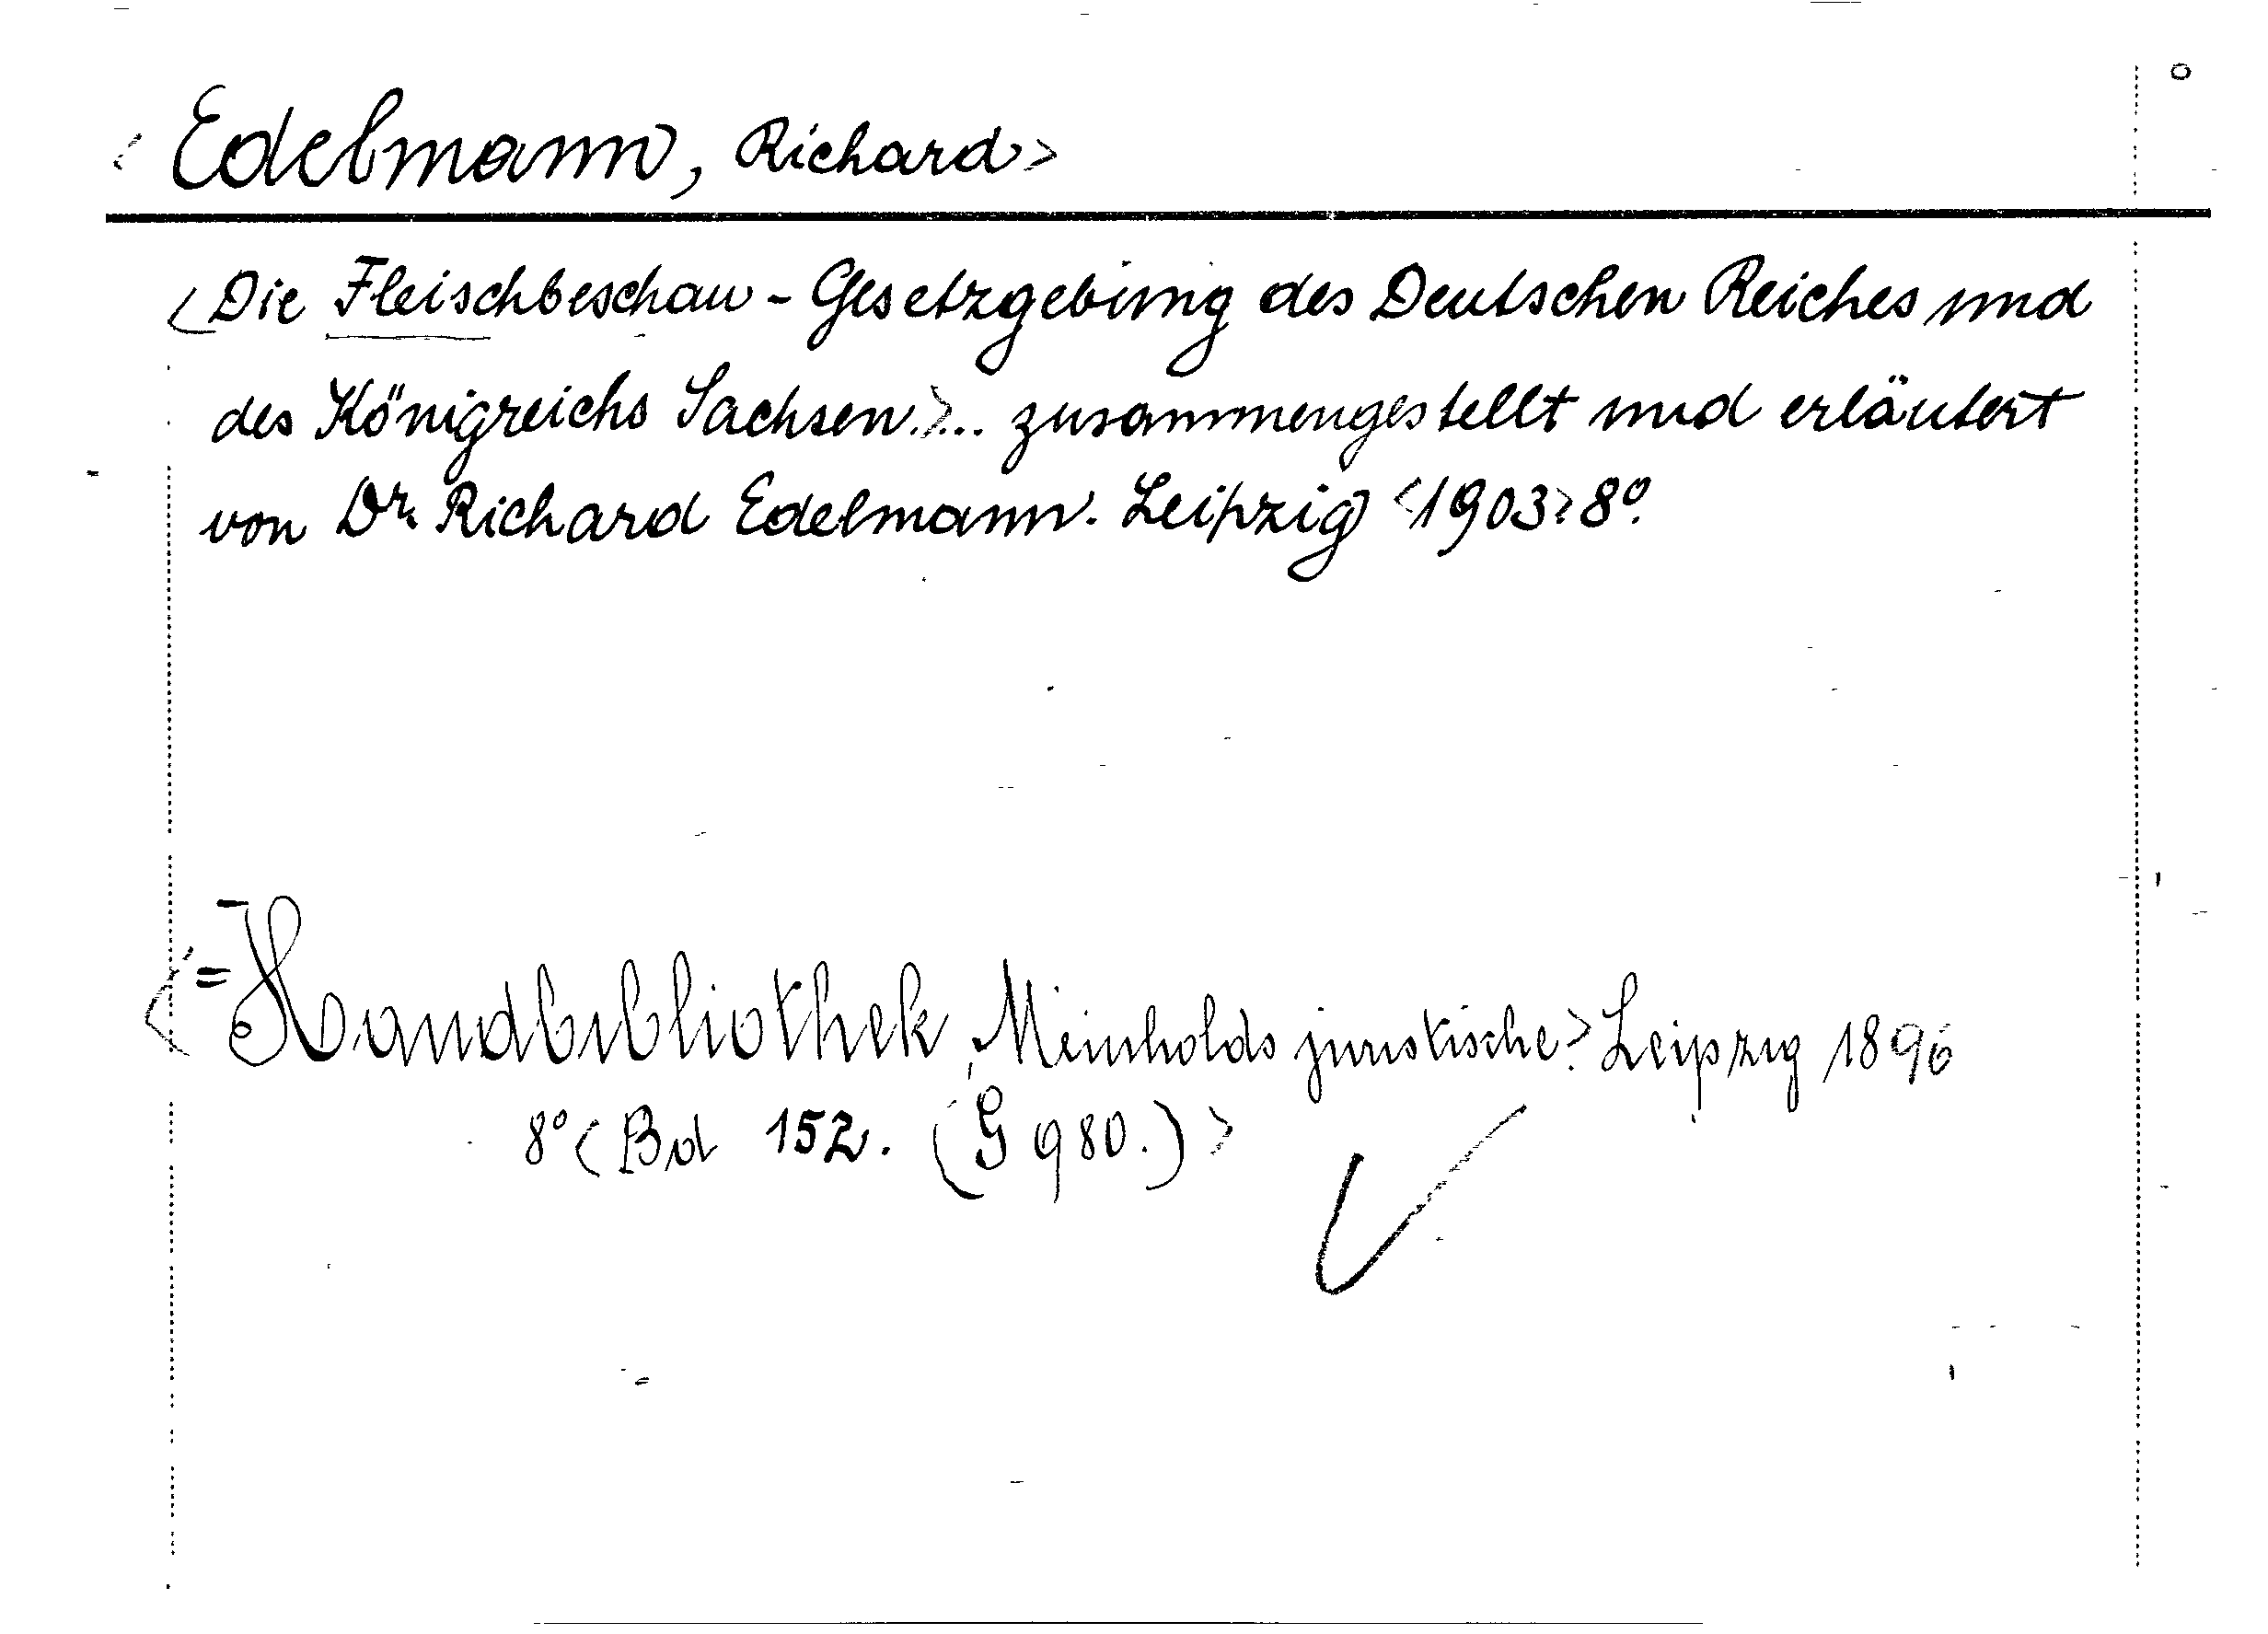 <Edelmann, Richard>
<Die Fleischbeschau-Gesetzgebung des Deutschen Reiches und
des Königreichs Sachsen.>... zusammengestellt und erläutert
von Dr. Richard Edelmann. Leipzig <1903> 8°.
<= Handbibliothek, Meinholds juristische.> Leipzig 1896
8° <Bd 152. (G 980.)>